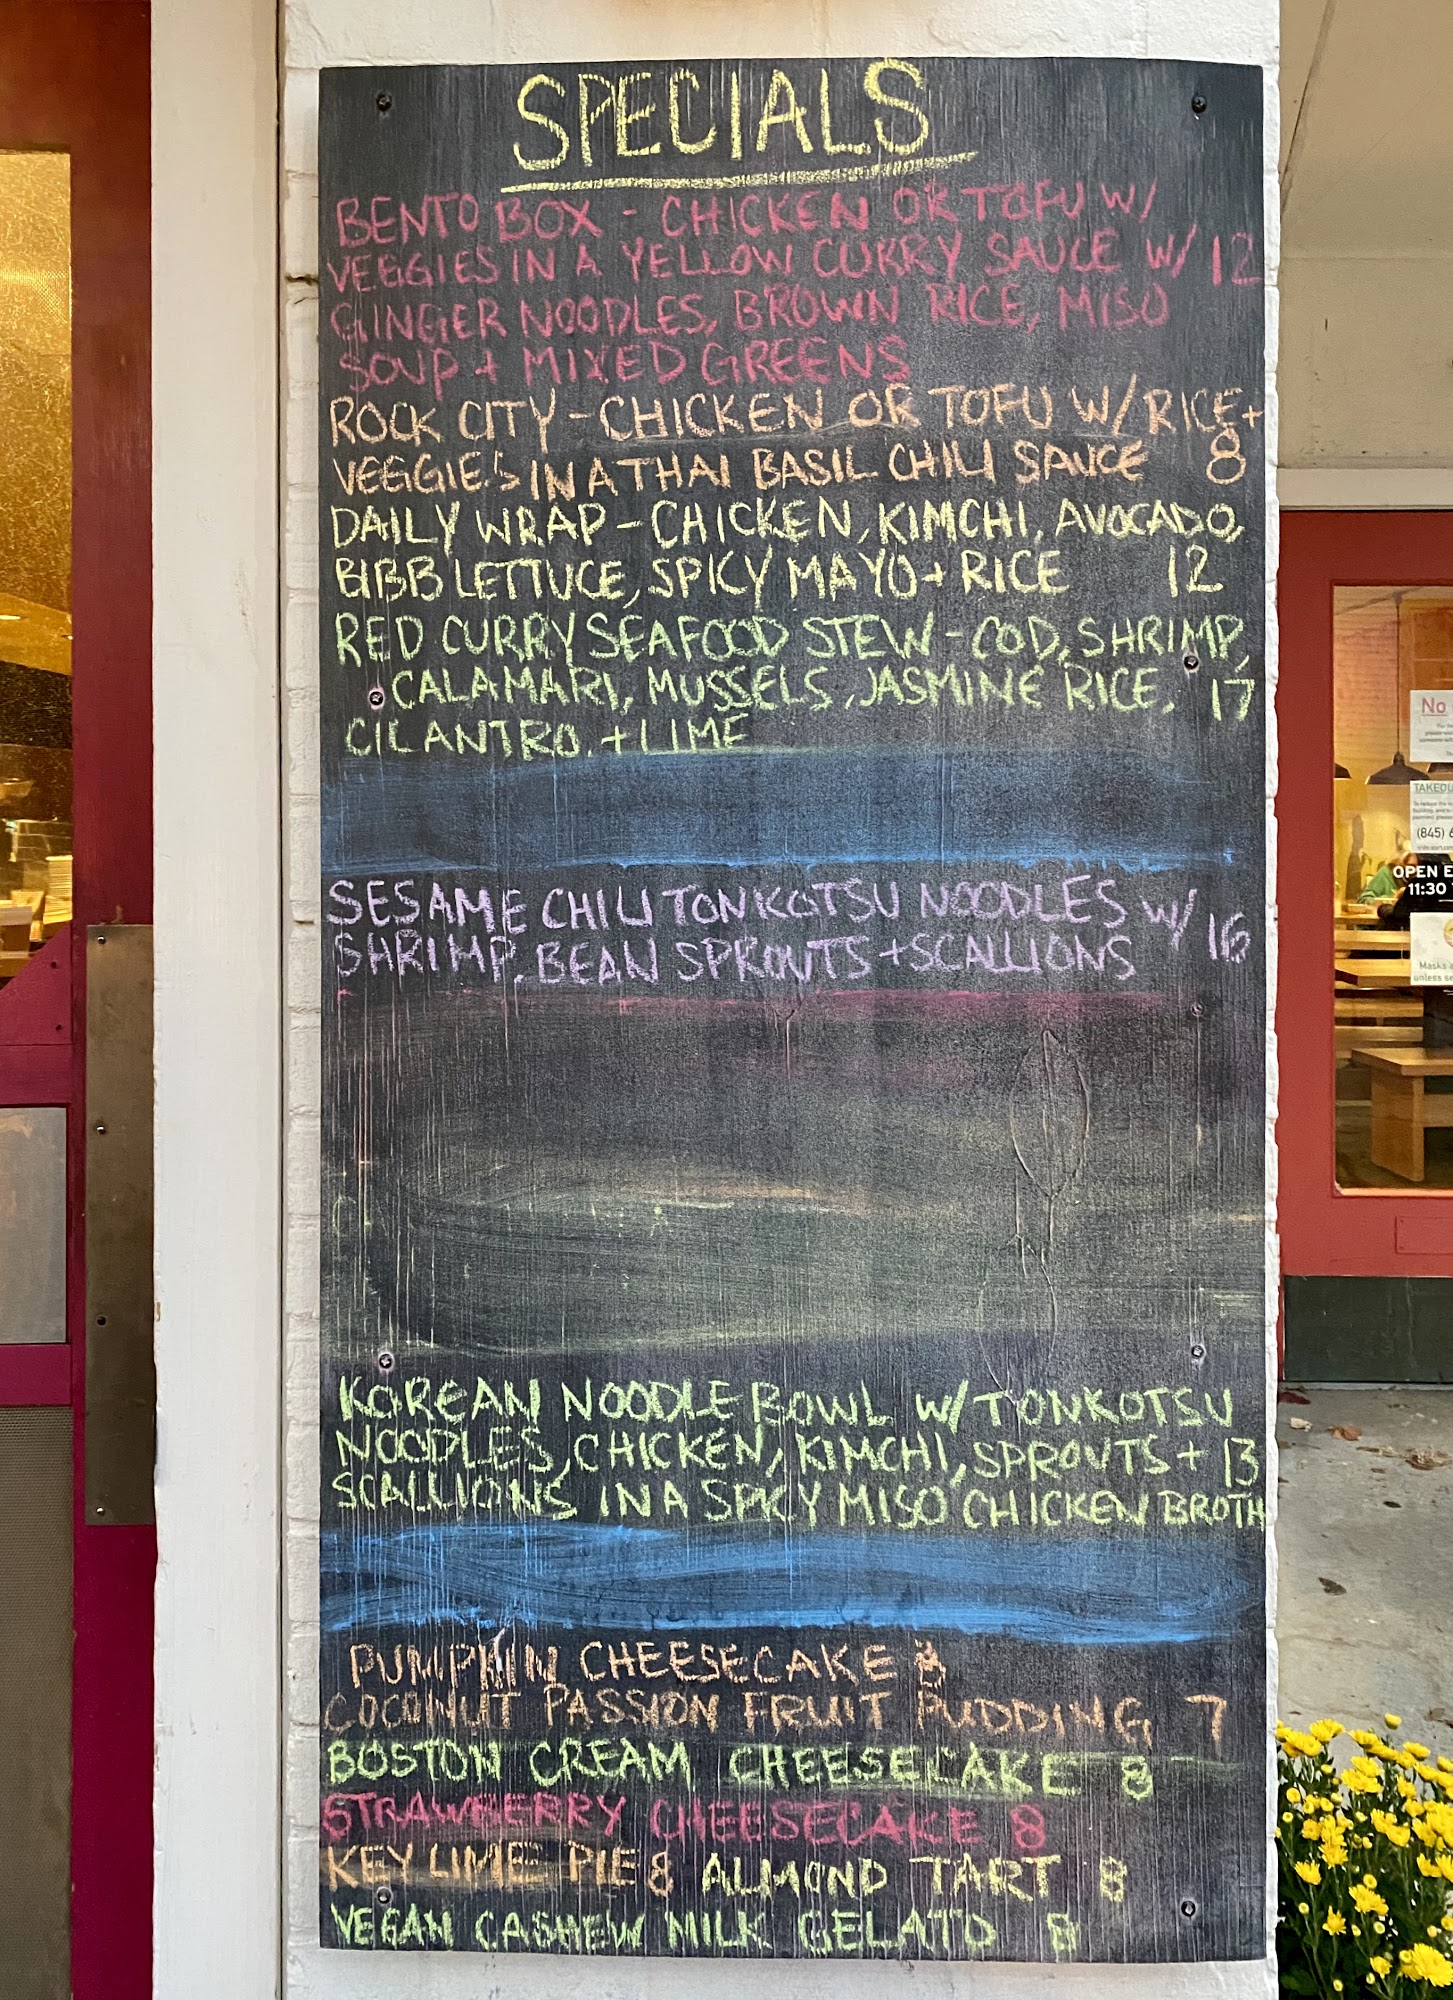 SPECIALS
BENTO BOX - CHICKEN OR TOFU W/
VEGGIES IN A YELLOW CURRY SAUCE W/ 12
GINGER NOODLES, BROWN RICE, MISO
SOUP + MIXED GREENS
ROCK CITY - CHICKEN OR TOFU W/ RICE +
VEGGIES IN A THAI BASIL CHILI SAUCE 8
DAILY WRAP - CHICKEN, KIMCHI, AVOCADO,
BIBB LETTUCE, SPICY MAYO + RICE 12
RED CURRY SEAFOOD STEW - COD, SHRIMP,
CALAMARI, MUSSELS, JASMINE RICE, 17
CILANTRO, + LIME
SESAME CHILI TONKOTSU NOODLES W/ 16
SHRIMP, BEAN SPROUTS + SCALLIONS
KOREAN NOODLE BOWL W/ TONKOTSU
NOODLES, CHICKEN, KIMCHI, SPROUTS + 13
SCALLIONS IN A SPICY MISO CHICKEN BROTH
PUMPKIN CHEESECAKE 8
COCONUT PASSION FRUIT PUDDING 7
BOSTON CREAM CHEESECAKE 8
STRAWBERRY CHEESECAKE 8
KEY LIME PIE 8 ALMOND TART 8
VEGAN CASHEW MILK GELATO 8
No
TAKEOU
(845) 6
OPEN E
11:30
Masks a
unless se